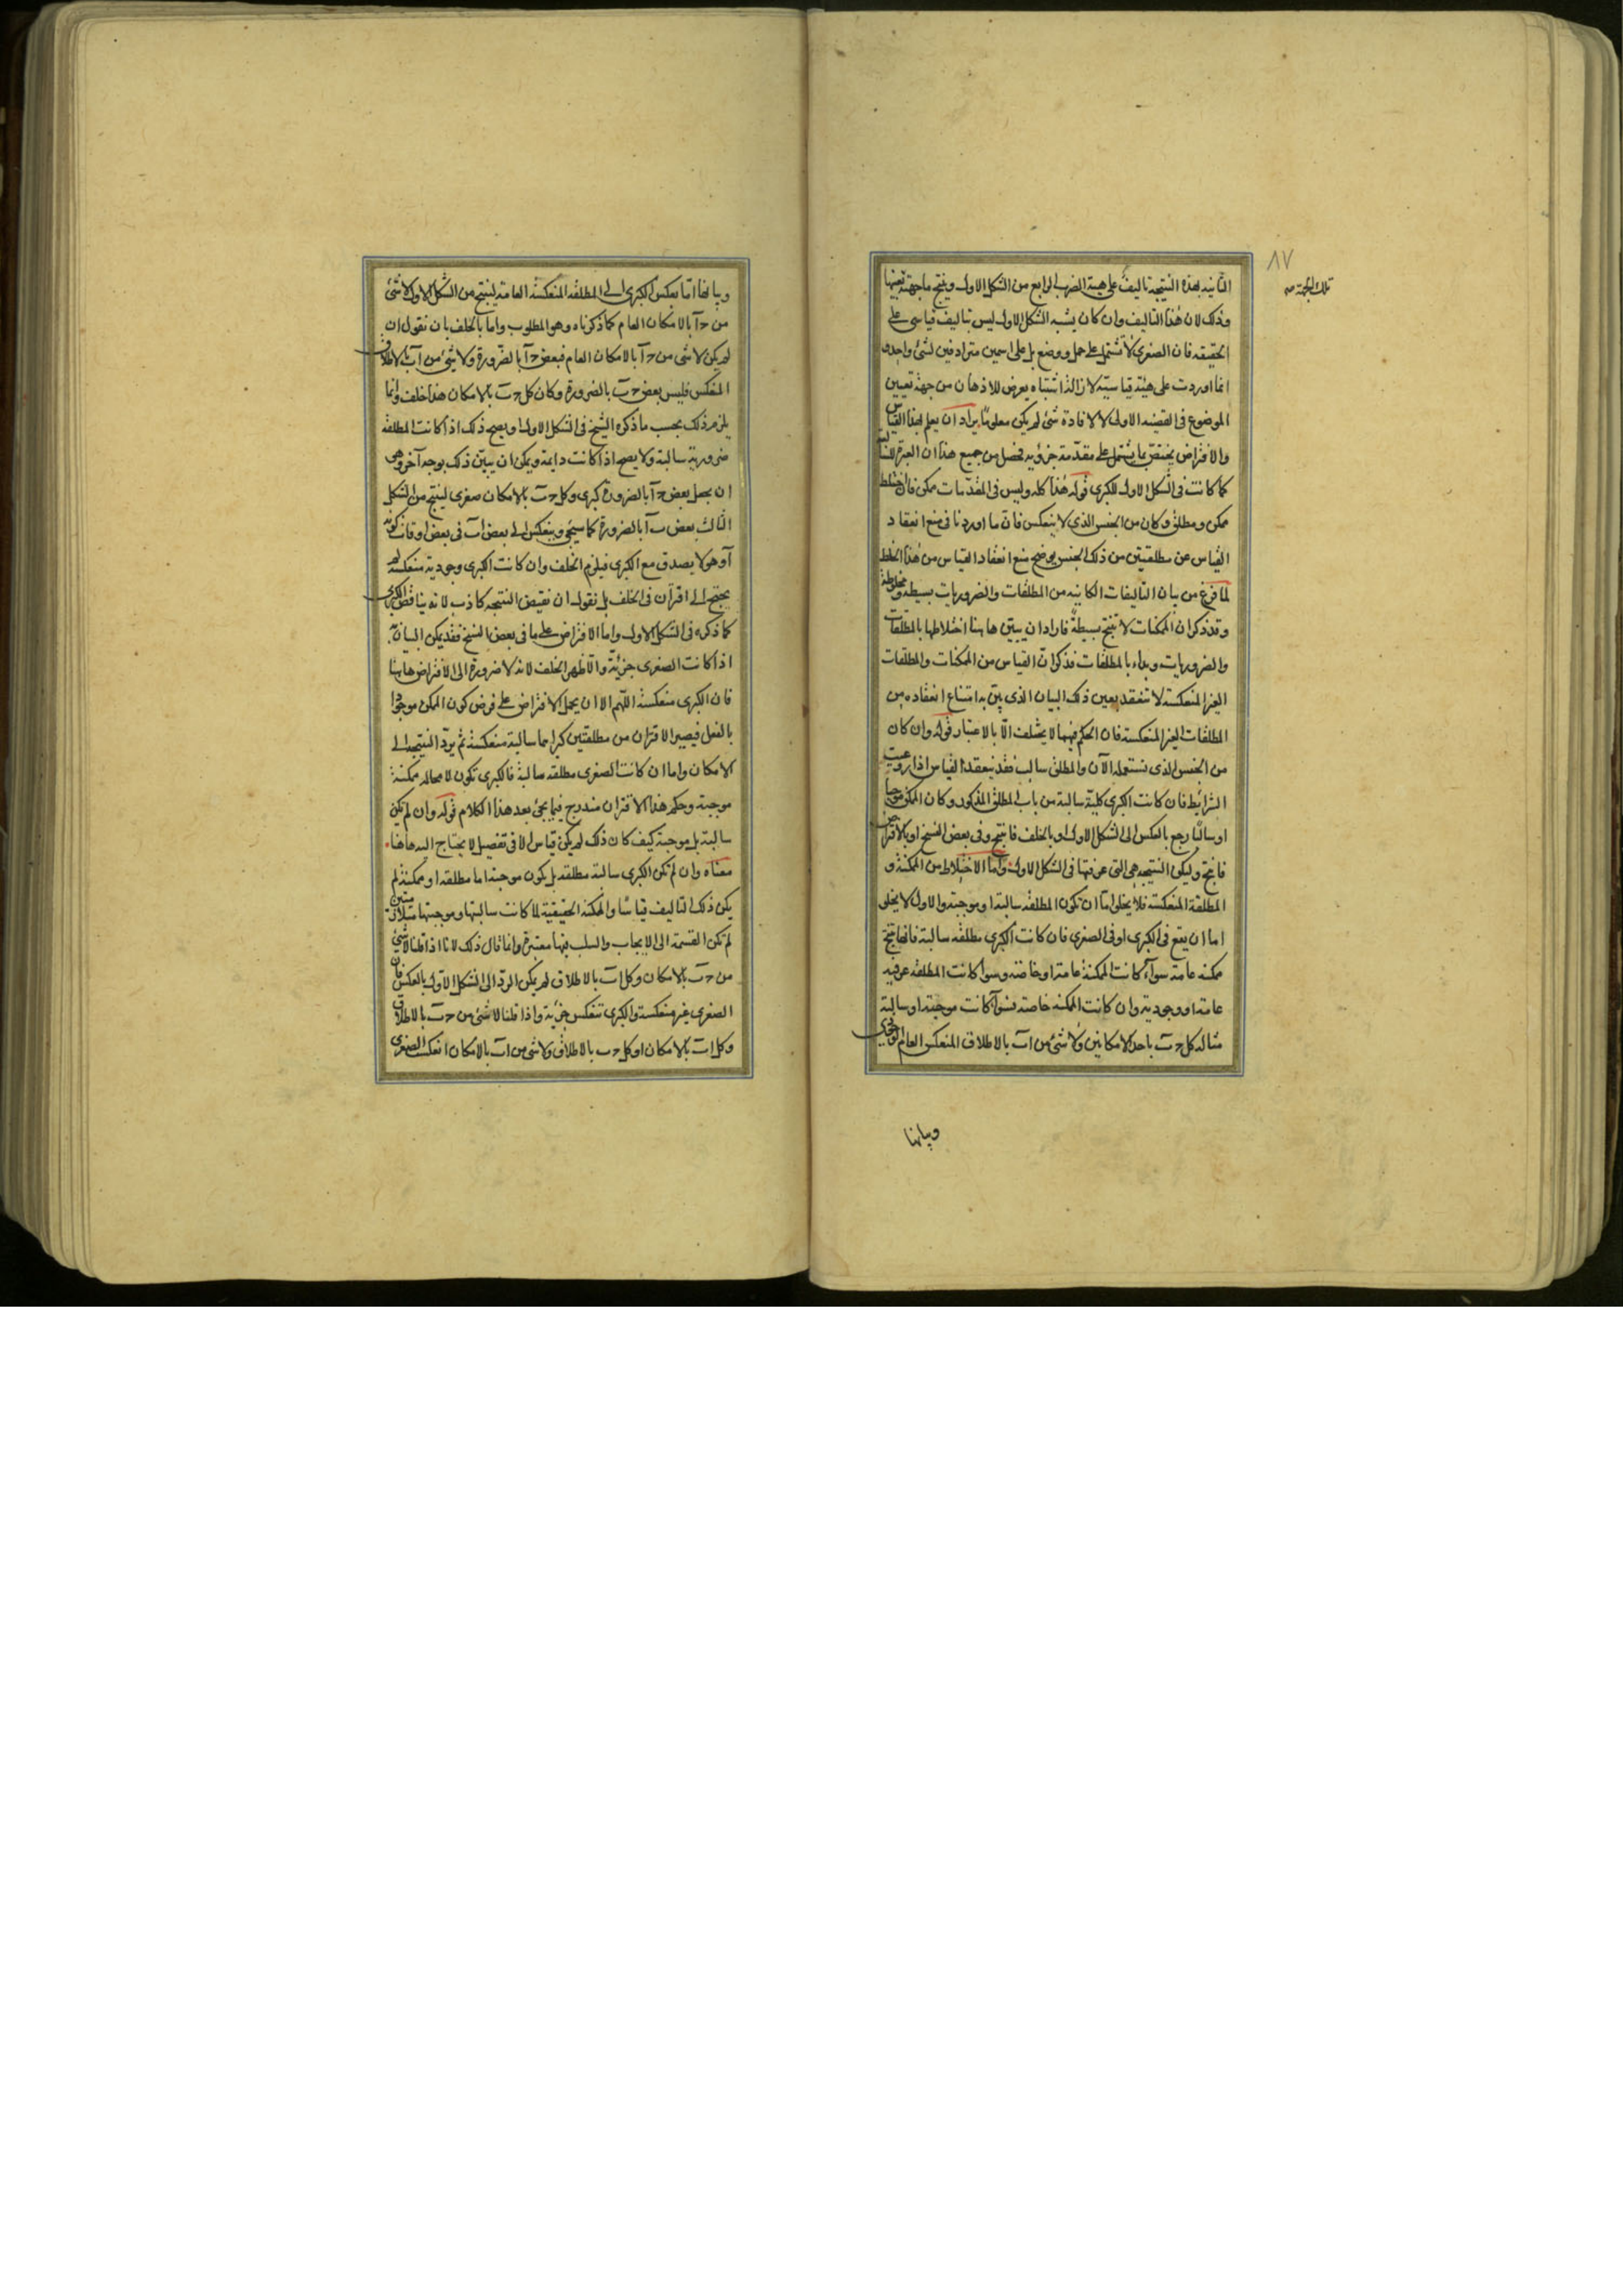 ٨٧
تلك الجهة صح
الثانية بهذه النتيجة تاليف على هيئة الضرب الرابع من الشكل الاول وينتج ما جهته بعينها
وذلك لان هذا التاليف وان كان يشبه الشكل الاول ليس بتاليف قياسى على
الحقيقه فان الصغرى لا تشتمل على حمل ووضع بل على اسمين مترادفين لشئ واحد
انما اوردت على هيئة قياسيّة لازالة اشتباه يعرض للاذهان من جهة تعيين
الموضوع فى القضيه الاولى لا لافادة شئ لم يكن معلوما يراد ان يعلم بهذا القياس
والافتراض يختص بما يشتمل على مقدّمة جزؤيه فحصل من جميع هذا ان العبرة للسالبة
كما كانت فى الشكل الاول للكبرى قوله هذا كله وليس فى المقدّمات ممكن فان اختلط
ممكن ومطلق وكان من الجنس الذى لا ينعكس فانّ ما اوردنا فى منع انعقاد
القياس عن مطلقتين من ذلك الجنس يوضح منع انعقاد القياس من هذا الخلط
لما فرغ من بيان التاليفات الكاينه من المطلقات والضروريات بسيطة ومخلوطة
وقد ذكر ان الممكنات لا تنتج بسيطةً فاراد ان يبيّن هاهنا اختلاطها بالمطلقات
والضروريات وبداء بالمطلقات فذكر انّ القياس من الممكنات والمطلقات
الغير المنعكسة لا تنعقد بعين ذلك البيان الذى بيّن به امتناع انعقاده من
المطلقات الغير المنعكسة فان الحكم فيهما لا يختلف الّا بالاعتبار قوله وان كان
من الجنس الذى نستعمله الآن والمطلق سالب فقد ينعقد القياس اذا روعيت
الشرائط فان كانت الكبرى كليّة سالبة من باب المطلق المذكور وكان الممكن موجبا
او سالبًا رجع بالعكس الى الشكل الاول او بالخلف فانتج وفى بعض النسخ او بالافتراض
فانتج وليكن النتيجة هى التى عرفتها فى الشكل الاول وامّا الاختلاط من الممكنة و
المطلقة المنعكسة فلا يخلو امّا ان تكون المطلقه سالبة او موجبة والاول لا يخلو
اما ان يقع فى الكبرى او فى الصغرى فان كانت الكبرى مطلقه سالبة فانها تنتج
ممكنه عامة سوآء كانت الممكنة عامة او خاصة وسوا كانت المطلقه عرفيه
عامة او وجودية وان كانت الممكنه خاصة فسوآ كانت موجبة او سالبة
مثاله كل ج ب باحد الامكانين ولا شئ من ا ب بالاطلاق المنعكس العام او الوجودى
وبيانها
وبيانها امّا بعكس الكبرى الى المطلقه المنعكسة العامة لينتج من الشكل الاول لا شئ
من ج ا بالامكان العام كما ذكرناه وهو المطلوب واما بالخلف بان نقول ان
لم يكن لا شئ من ج ا بالامكان العام فبعض ج ا بالضرورة ولا شئ من ا ب بالاطلاق
المنعكس فليس بعض ج ب بالضرورة وكان كل ج ب بالامكان هذا خلف وانما
يلزم ذلك بحسب ما ذكره الشيخ فى الشكل الاول ويصح ذلك اذا كانت المطلقه
ضرورية سالبة ولا يصح اذا كانت دايمة ويمكن ان يبيّن ذلك بوجه آخر وهو
ان يجعل بعض ج ا بالضرورة كبرى وكل ج ب بالامكان صغرى لينتج من الشكل
الثالث بعض ب ا بالضرورة كما سيجئ وينعكس الى بعض ا ب فى بعض اوقات كونه
ا وهو لا يصدق مع الكبرى فيلزم الخلف وان كانت الكبرى وجودية منعكسة لم
يحتج الى اقتران فى الخلف بل نقول ان نقيض النتيجه كاذب لانه يناقض الكبرى
كما ذكره فى الشكل الاول واما الافتراض على ما فى بعض النسخ فقد يمكن البيان به
اذا كانت الصغرى جزئية والاظهر الخلف لانه لا ضرورة الى الافتراض هاهنا
فان الكبرى منعكسة اللّهم الا ان يحمل الافتراض على فرض كون الممكن موجودا
بالفعل فيصير الاقتران من مطلقتين كبراهما سالبة منعكسة ثم يردّ النتيجة الى
الامكان واما ان كانت الصغرى مطلقه سالبة فالكبرى تكون لا محاله ممكنة
موجبة وحكم هذا الاقتران مندرج فيما يجئ بعد هذا الكلام قوله وان لم تكن
سالبة بل موجبة كيف كان ذلك لم يكن قياس الا فى تفصيل لا يحتاج اليه هاهنا
معناه وان لم تكن الكبرى سالبة مطلقه بل يكون موجبة اما مطلقه او ممكنة لم
يكن ذلك التاليف قياسًا والممكنة الحقيقية لما كانت سالبتها وموجبتها متلازمتين
لم تكن القسمة الى الايجاب والسلب فيها معتبرة وانما قال ذلك لانا اذا قلنا لا شئ
من ج ب بالامكان وكل ا ب بالاطلاق لم يكن الردّ الى الشكل الاول بالعكس فان
الصغرى غير منعكسة والكبرى تنعكس جزئية واذا قلنا لا شئ من ج ب بالاطلاق
وكل ا ب بالامكان او كل ج ب بالاطلاق ولا شئ من ا ب بالامكان انعكست الصغرى